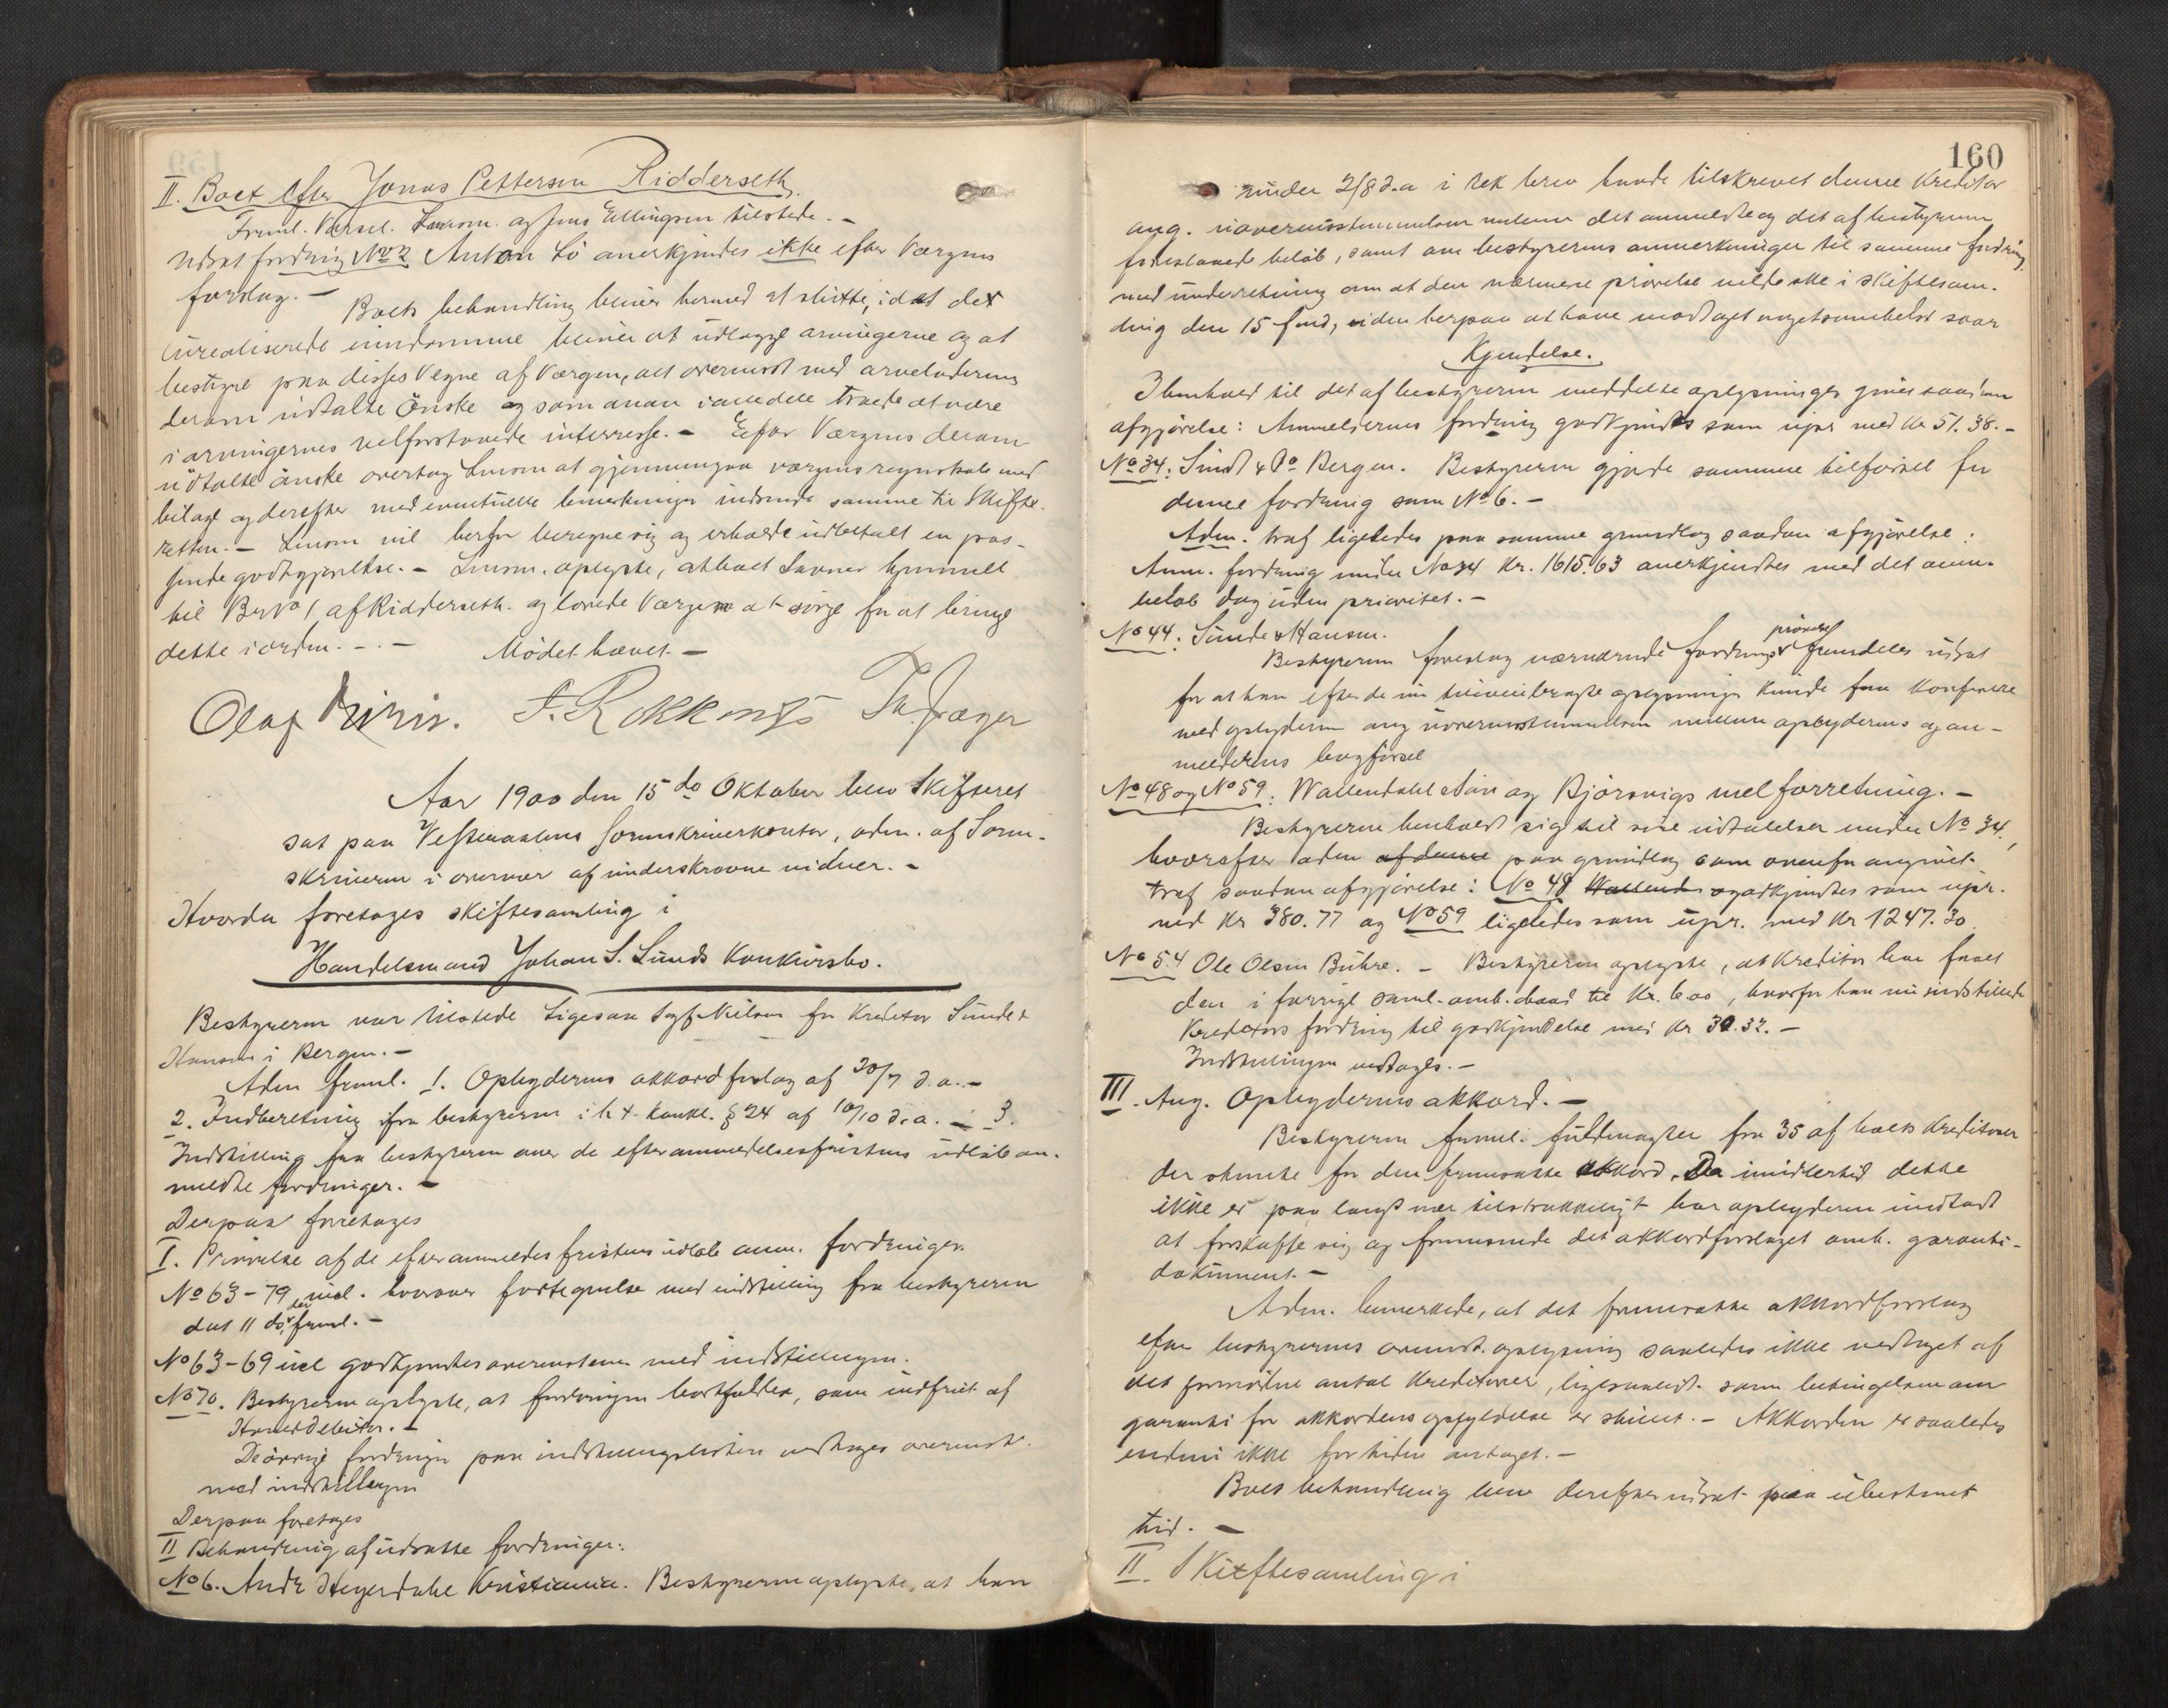 II. Boet efter Jonas Pettersen Ridderseth.
Freml. Varsel. Lensm. og Jens Ellingsen tilstede. -
Udsat fordring No 2 Anton Lø anerkjendes ikke efter Værgens
forslag. -
Boets behandling bliver hermed at slutte, idet det
urealiserede eiendomme bliver at udlægge arvingerne og at
bestyre paa disses Vegne af Værgen, alt overenst med arveladerens
derom udtalte ønske og som ansaaes at være
i arvingernes velforstaaede interesse. - Efter Værgens derom
udtalte ønske overtog Lensm at gjennemgaa værgens regnskab med
bilage og derefter med eventuelle bemerkninger indsende samme til Skifte-
retten. - Lensm vil herfor beregne sig og erholde udbetalt en pas-
sende godtgjørelse. - Lensm. oplyste, at boet savner hjemmel
til Bno 1 af Ridderseth og lovede Værgen at sørge for at bringe
dette i orden. - . -
Mødet hævet. -
Olaf
Aar 1900 den 15de Oktober blev Skifteret
sat paa Vesteraalens Sorenskriverkontor, adm. af Soren-
skriveren i overvær af underskrevne vidner. -
Hvorda foretages skiftesamling i
Handelsmand Johan S. Sunds Konkursbo.
Bestyreren var tilstede ligesaa Sagf. Nilsen for Kreditor Sunde &
Hansen i Bergen. -
Adm freml. 1. Opbyderens akkordforslag af 20/7 d. a. -
2. Indberetning fra bestyreren i h t. konkl. § 24 af 10/10 d. a. - 3.
Indstilling fra bestyreren over de efter anmeldelsesfristens udløb an-
meldte fordringer. -
Derpaa foretages
I. Prøvelse af de efter anmeldesfristens udløb anm. fordringer.
No 63-79 incl. hvorover fortegnelse med indstilling fra bestyreren
dat 11 ds, freml. -
No 63-69 incl godkjendtes overensstem med indstillingen.
No 70. Bestyreren oplyste, at fordringen bortfalder, som indfriet af
Hoveddebitor. -
De øvrige fordringer paa indstillingslisten vedtages overenst.
med indstillingen
Derpaa foretages
II Behandling af udsatte fordringer:
No 6. Andr Heyerdahl Kristiania. Bestyreren oplyste, at han
160
under 2/8 d. a i rek brev havde tilskrevet denne Kreditor
ang. uoverensstemmelsen mellem det anmeldte og det af bestyreren
foreslaaede beløb, samt om bestyrerens anmerkninger til samme fordring,
med underretning om at den nærmere prøvelse vilde ske i skiftesam-
ling den 15 fmd, uden herpaa at have modtaget nogetsomhelst svar
Kjendelse.
I henhold til det af bestyreren meddelte oplysninger gives saadan
afgjørelse: Anmelderens fordring godkjendes som upr med Kr 51.38. -
No 34. Sund & Co Bergen. Bestyreren gjorde samme tilførsel for
denne fordring som No 6. -
Adm. traf ligeledes paa samme grundlag saadan afgjørelse:
Anm. fordring under No 34 Kr. 1615.63 anerkjendtes med det anm.
beløb dog uden prioritet. -
No 44. Sunde & Hansen.
Bestyreren foreslog nærværende fordrings prøvelse fremdeles udsat
for at han efter de nu tilveiebragte oplysninger kunde faa konferere
med opbyderen ang uoverensstemmelsen mellem opbyderens og an-
melderens bogførsel
No 48 og No 59: Wallendahl & Søn og Bjørsvigs melforretning. -
Bestyreren henholdt sig til sine udtalelser under No 34,
hvorefter adm af denne paa grundlag som ovenfor angivet
traf saadan afgjørelse: No 48 Wallends godkjendtes som upr.
med Kr 380.77 og No 59 ligeledes som upr. med Kr 1247.30
No 54 Ole Olsen Buhre. - Bestyreren oplyste, at Kreditor har faaet
den i forrige saml. omh. baad til Kr. 6.00, hvorfor han nu indstillede
Kreditors fordring til godkjendelse med Kr 30.32. -
Indstillingen vedtages. -
III. Ang. Opbyderens akkord. -
Bestyreren freml. fuldmagter fra 35 af boets Kreditorer
der stemte for den fremsatte akkord. Da imidlertid dette
ikke er paa langt nær tilstrækkeligt har opbyderen undladt
at forskaffe sig og fremsende det i akkordforslaget omh. garanti-
dokument. -
Adm. bemerkede, at det fremsatte akkordforslag
efter bestyrerens ovenst. oplysning saaledes ikke vedtaget af
det fornødne antal Kreditorer, ligesaalidt som betingelsen om
garanti for akkordens opfyldelse er stillet. - Akkorden er saaledes
endnu ikke for tiden antaget. -
Boets behandling blev derefter udsat paa ubestemt
tid. -
II. Skiftesamling i